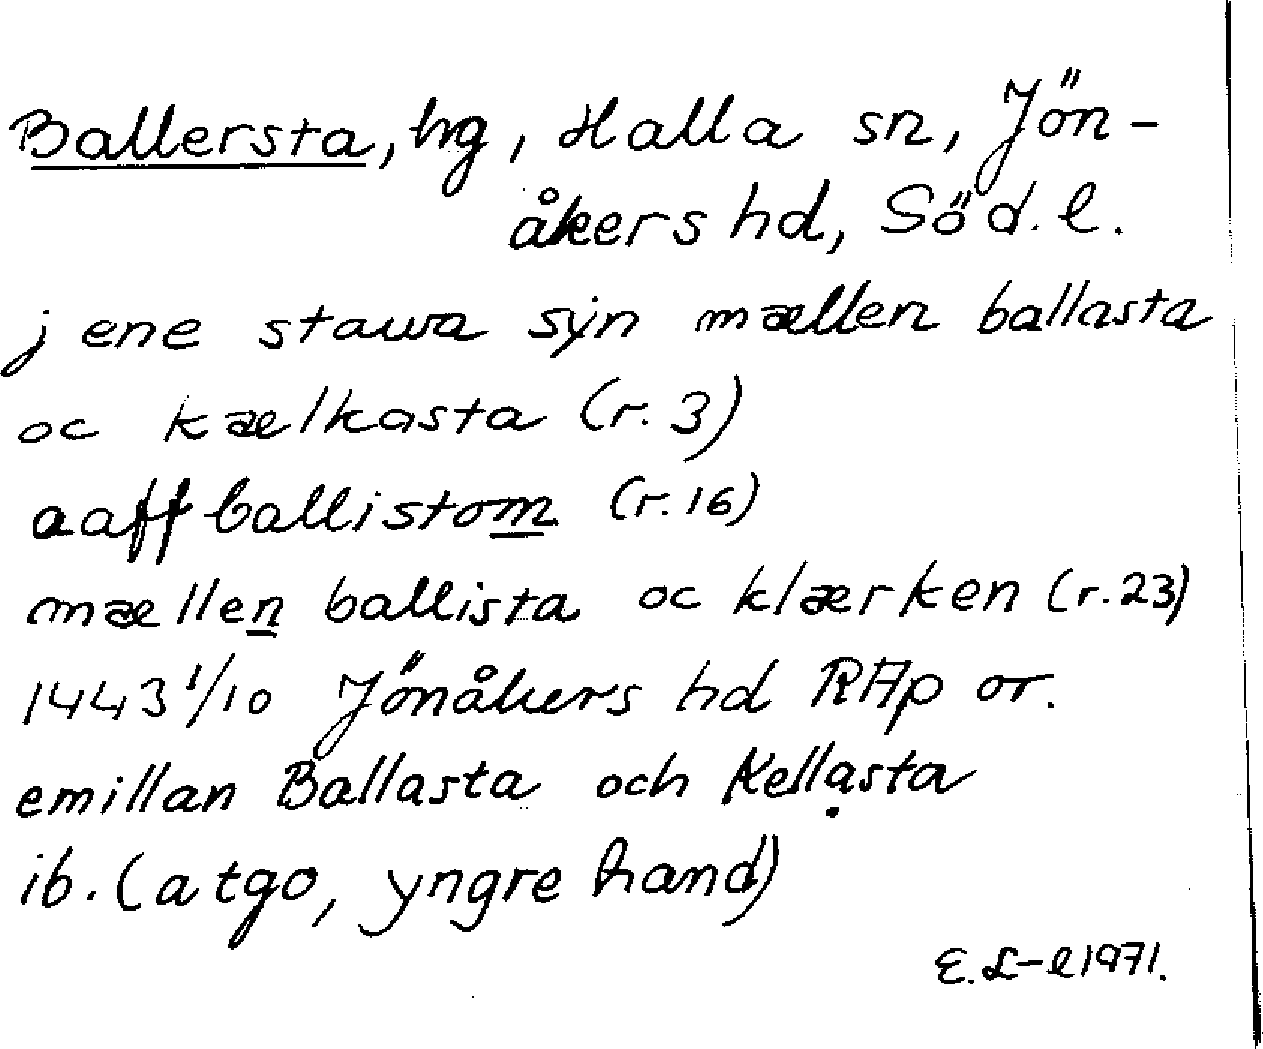 Ballersta, hg, Halla sn, Jön-
åkers hd, Söd. l.
j ene stawa syn mællen ballasta
oc kælkasta (r. 3)
aaff ballistom (r. 16)
mællen ballista oc klærken (r. 23)
1443 1/10 Jönåkers hd RAp or.
emillan Ballasta och Kellạsta
ib. (atgo, yngre hand)
E. L-l 1971.